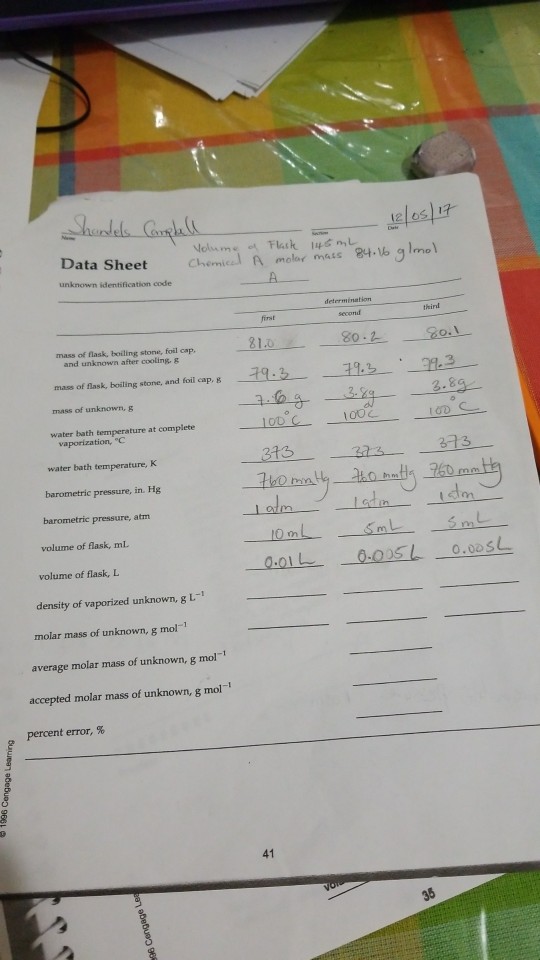 Shandels Campbell
12/05/17
Name
Section
Date
Volume of Flask 145 mL
Data Sheet
Chemical A molar mass 84.16 g/mol
unknown identification code A
determination
first second third
mass of flask, boiling stone, foil cap, and unknown after cooling, g 81.0 80.2 80.1
mass of flask, boiling stone, and foil cap, g 79.3 79.3 79.3
mass of unknown, g 7.6 g 3.8g 3.8g
water bath temperature at complete vaporization, °C 100°C 100°C 100°C
water bath temperature, K 373 373 373
barometric pressure, in. Hg 760 mmHg 760 mmHg 760 mmHg
barometric pressure, atm 1 atm 1 atm 1 atm
volume of flask, mL 10 mL 5mL 5mL
volume of flask, L 0.01L 0.005L 0.005L
density of vaporized unknown, g L⁻¹
molar mass of unknown, g mol⁻¹
average molar mass of unknown, g mol⁻¹
accepted molar mass of unknown, g mol⁻¹
percent error, %
© 1996 Cengage Learning
41
35